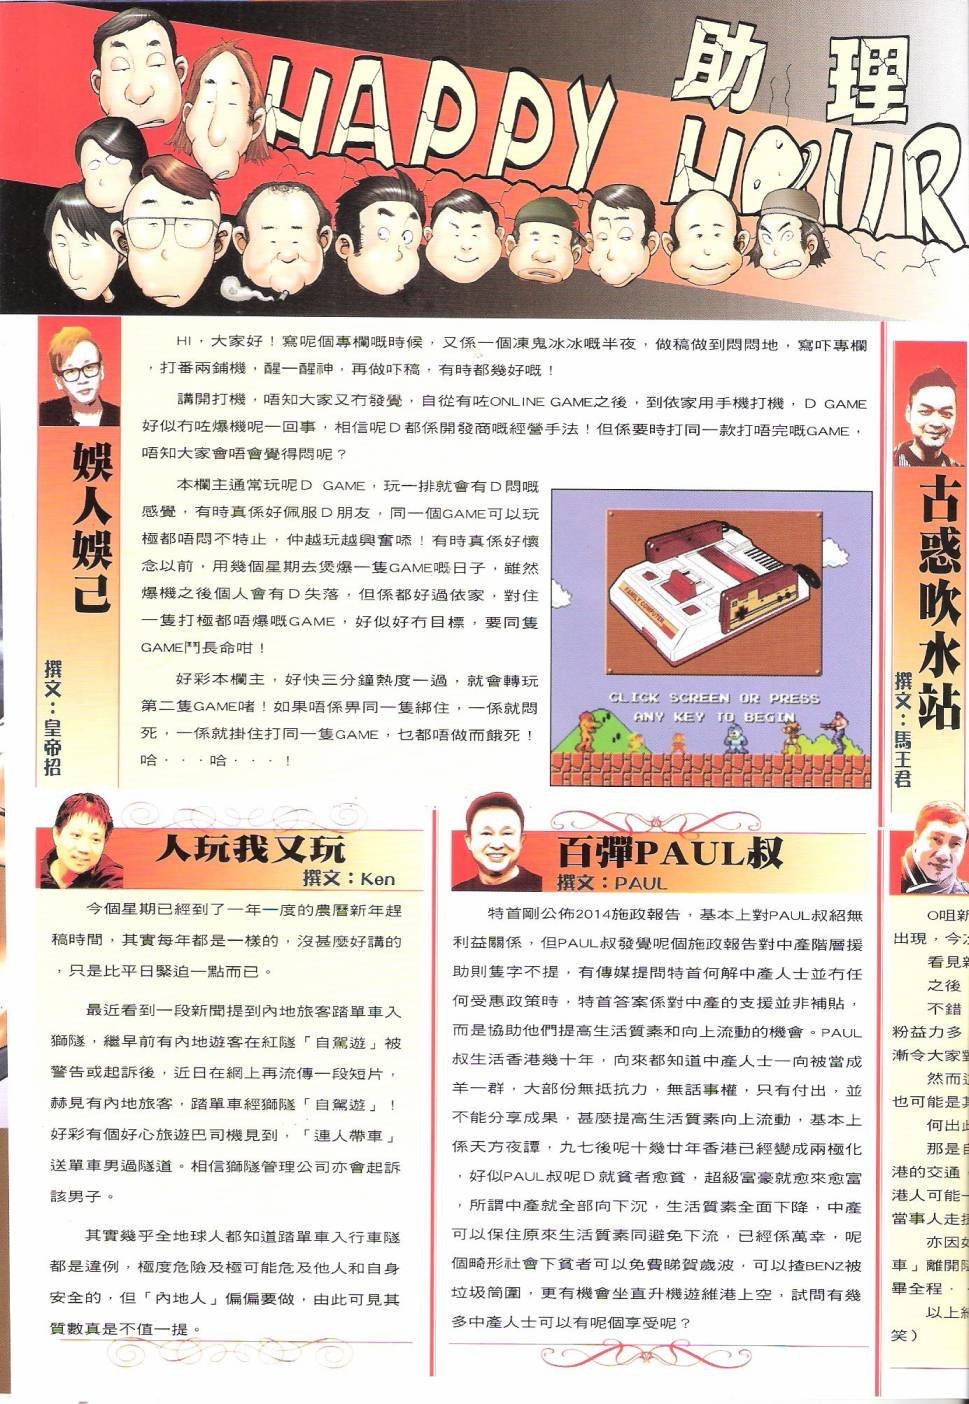 助理
HAPPY HOUR
娛人娛己
撰文：皇帝招
HI，大家好！寫呢個專欄嘅時候，又係一個凍鬼冰冰嘅半夜，做稿做到悶悶地，寫吓專欄
，打番兩鋪機，醒一醒神，再做吓稿，有時都幾好嘅！
講開打機，唔知大家又冇發覺，自從有咗ONLINE GAME之後，到依家用手機打機，D GAME
好似冇咗爆機呢一回事，相信呢D都係開發商嘅經營手法！但係要時打同一款打唔完嘅GAME，
唔知大家會唔會覺得悶呢？
本欄主通常玩呢D GAME，玩一排就會有D悶嘅
感覺，有時真係好佩服D朋友，同一個GAME可以玩
極都唔悶不特止，仲越玩越興奮㗎！有時真係好懷
念以前，用幾個星期去煲爆一隻GAME嘅日子，雖然
爆機之後個人會有D失落，但係都好過依家，對住
一隻打極都唔爆嘅GAME，好似好冇目標，要同隻
GAME鬥長命咁！
好彩本欄主，好快三分鐘熱度一過，就會轉玩
第二隻GAME啫！如果唔係畀同一隻綁住，一係就悶
死，一係就掛住打同一隻GAME，乜都唔做而餓死！
哈．．．哈．．．！
FAMILY COMPUTER
CLICK SCREEN OR PRESS
ANY KEY TO BEGIN
古惑吹水站
撰文：馬王君
人玩我又玩
撰文：Ken
今個星期已經到了一年一度的農曆新年趕
稿時間，其實每年都是一樣的，沒甚麼好講的
，只是比平日緊迫一點而已。
最近看到一段新聞提到內地旅客踏單車入
獅隧，繼早前有內地遊客在紅隧「自駕遊」被
警告或起訴後，近日在網上再流傳一段短片，
赫見有內地旅客，踏單車經獅隧「自駕遊」！
好彩有個好心旅遊巴司機見到，「連人帶車」
送單車男過隧道。相信獅隧管理公司亦會起訴
該男子。
其實幾乎全地球人都知道踏單車入行車隧
都是違例，極度危險及極可能危及他人和自身
安全的，但「內地人」偏偏要做，由此可見其
質數真是不值一提。
百彈PAUL叔
撰文：PAUL
特首剛公佈2014施政報告，基本上對PAUL叔紹無
利益關係，但PAUL叔發覺呢個施政報告對中產階層援
助則隻字不提，有傳媒提問特首何解中產人士並冇任
何受惠政策時，特首答案係對中產的支援並非補貼，
而是協助他們提高生活質素和向上流動的機會。PAUL
叔生活香港幾十年，向來都知道中產人士一向被當成
羊一群，大部份無抵抗力，無話事權，只有付出，並
不能分享成果，甚麼提高生活質素向上流動，基本上
係天方夜譚，九七後呢十幾廿年香港已經變成兩極化
，好似PAUL叔呢D就貧者愈貧，超級富豪就愈來愈富
，所謂中產就全部向下沉，生活質素全面下降，中產
可以保住原來生活質素同避免下流，已經係萬幸，呢
個畸形社會下貧者可以免費睇賀歲波，可以揸BENZ被
垃圾筒圍，更有機會坐直升機遊維港上空，試問有幾
多中產人士可以有呢個享受呢？
O咀新
出現，今次
看見新
之後
不錯
粉益力多
漸令大家對
然而這
也可能是其
何出此
那是自
港的交通
港人可能一
當事人走捷
亦因如
車」離開隧
畢全程．
以上純
笑）